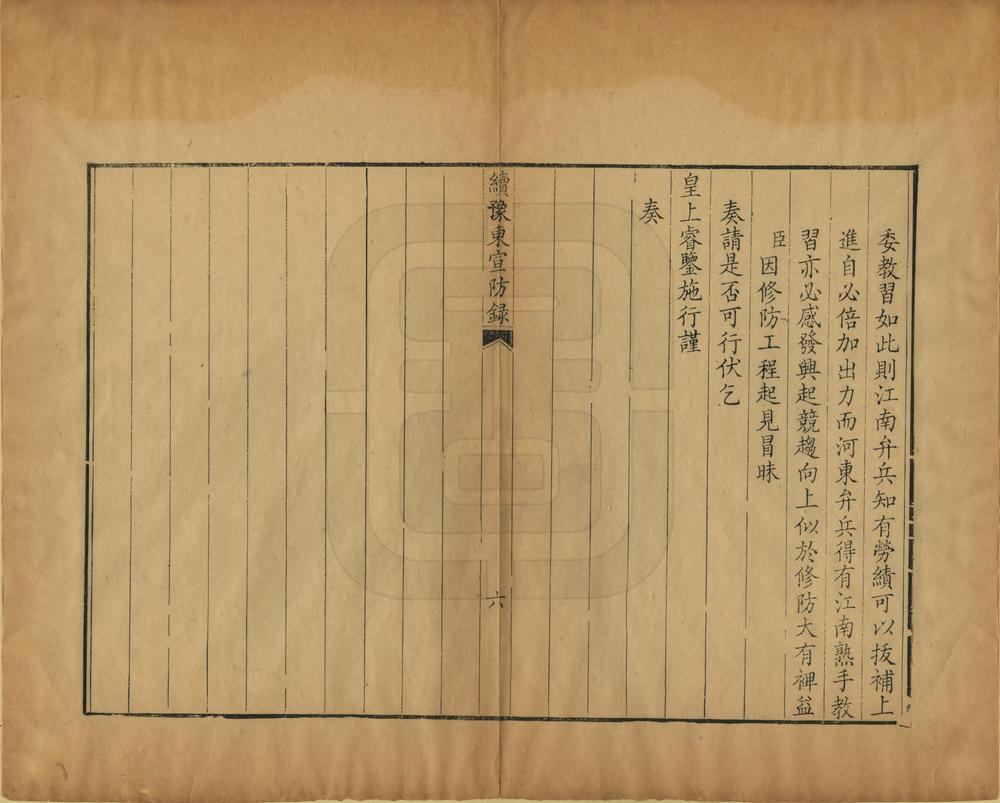 委教習如此則江南弁兵知有勞績可以拔補上
進自必倍加出力而河東弁兵得有江南熟手教
習亦必感發興起競趨向上似於修防大有裨益
臣因修防工程起見冒昧
奏請是否可行伏乞
皇上睿鑒施行謹
奏
續豫東宣防錄
六